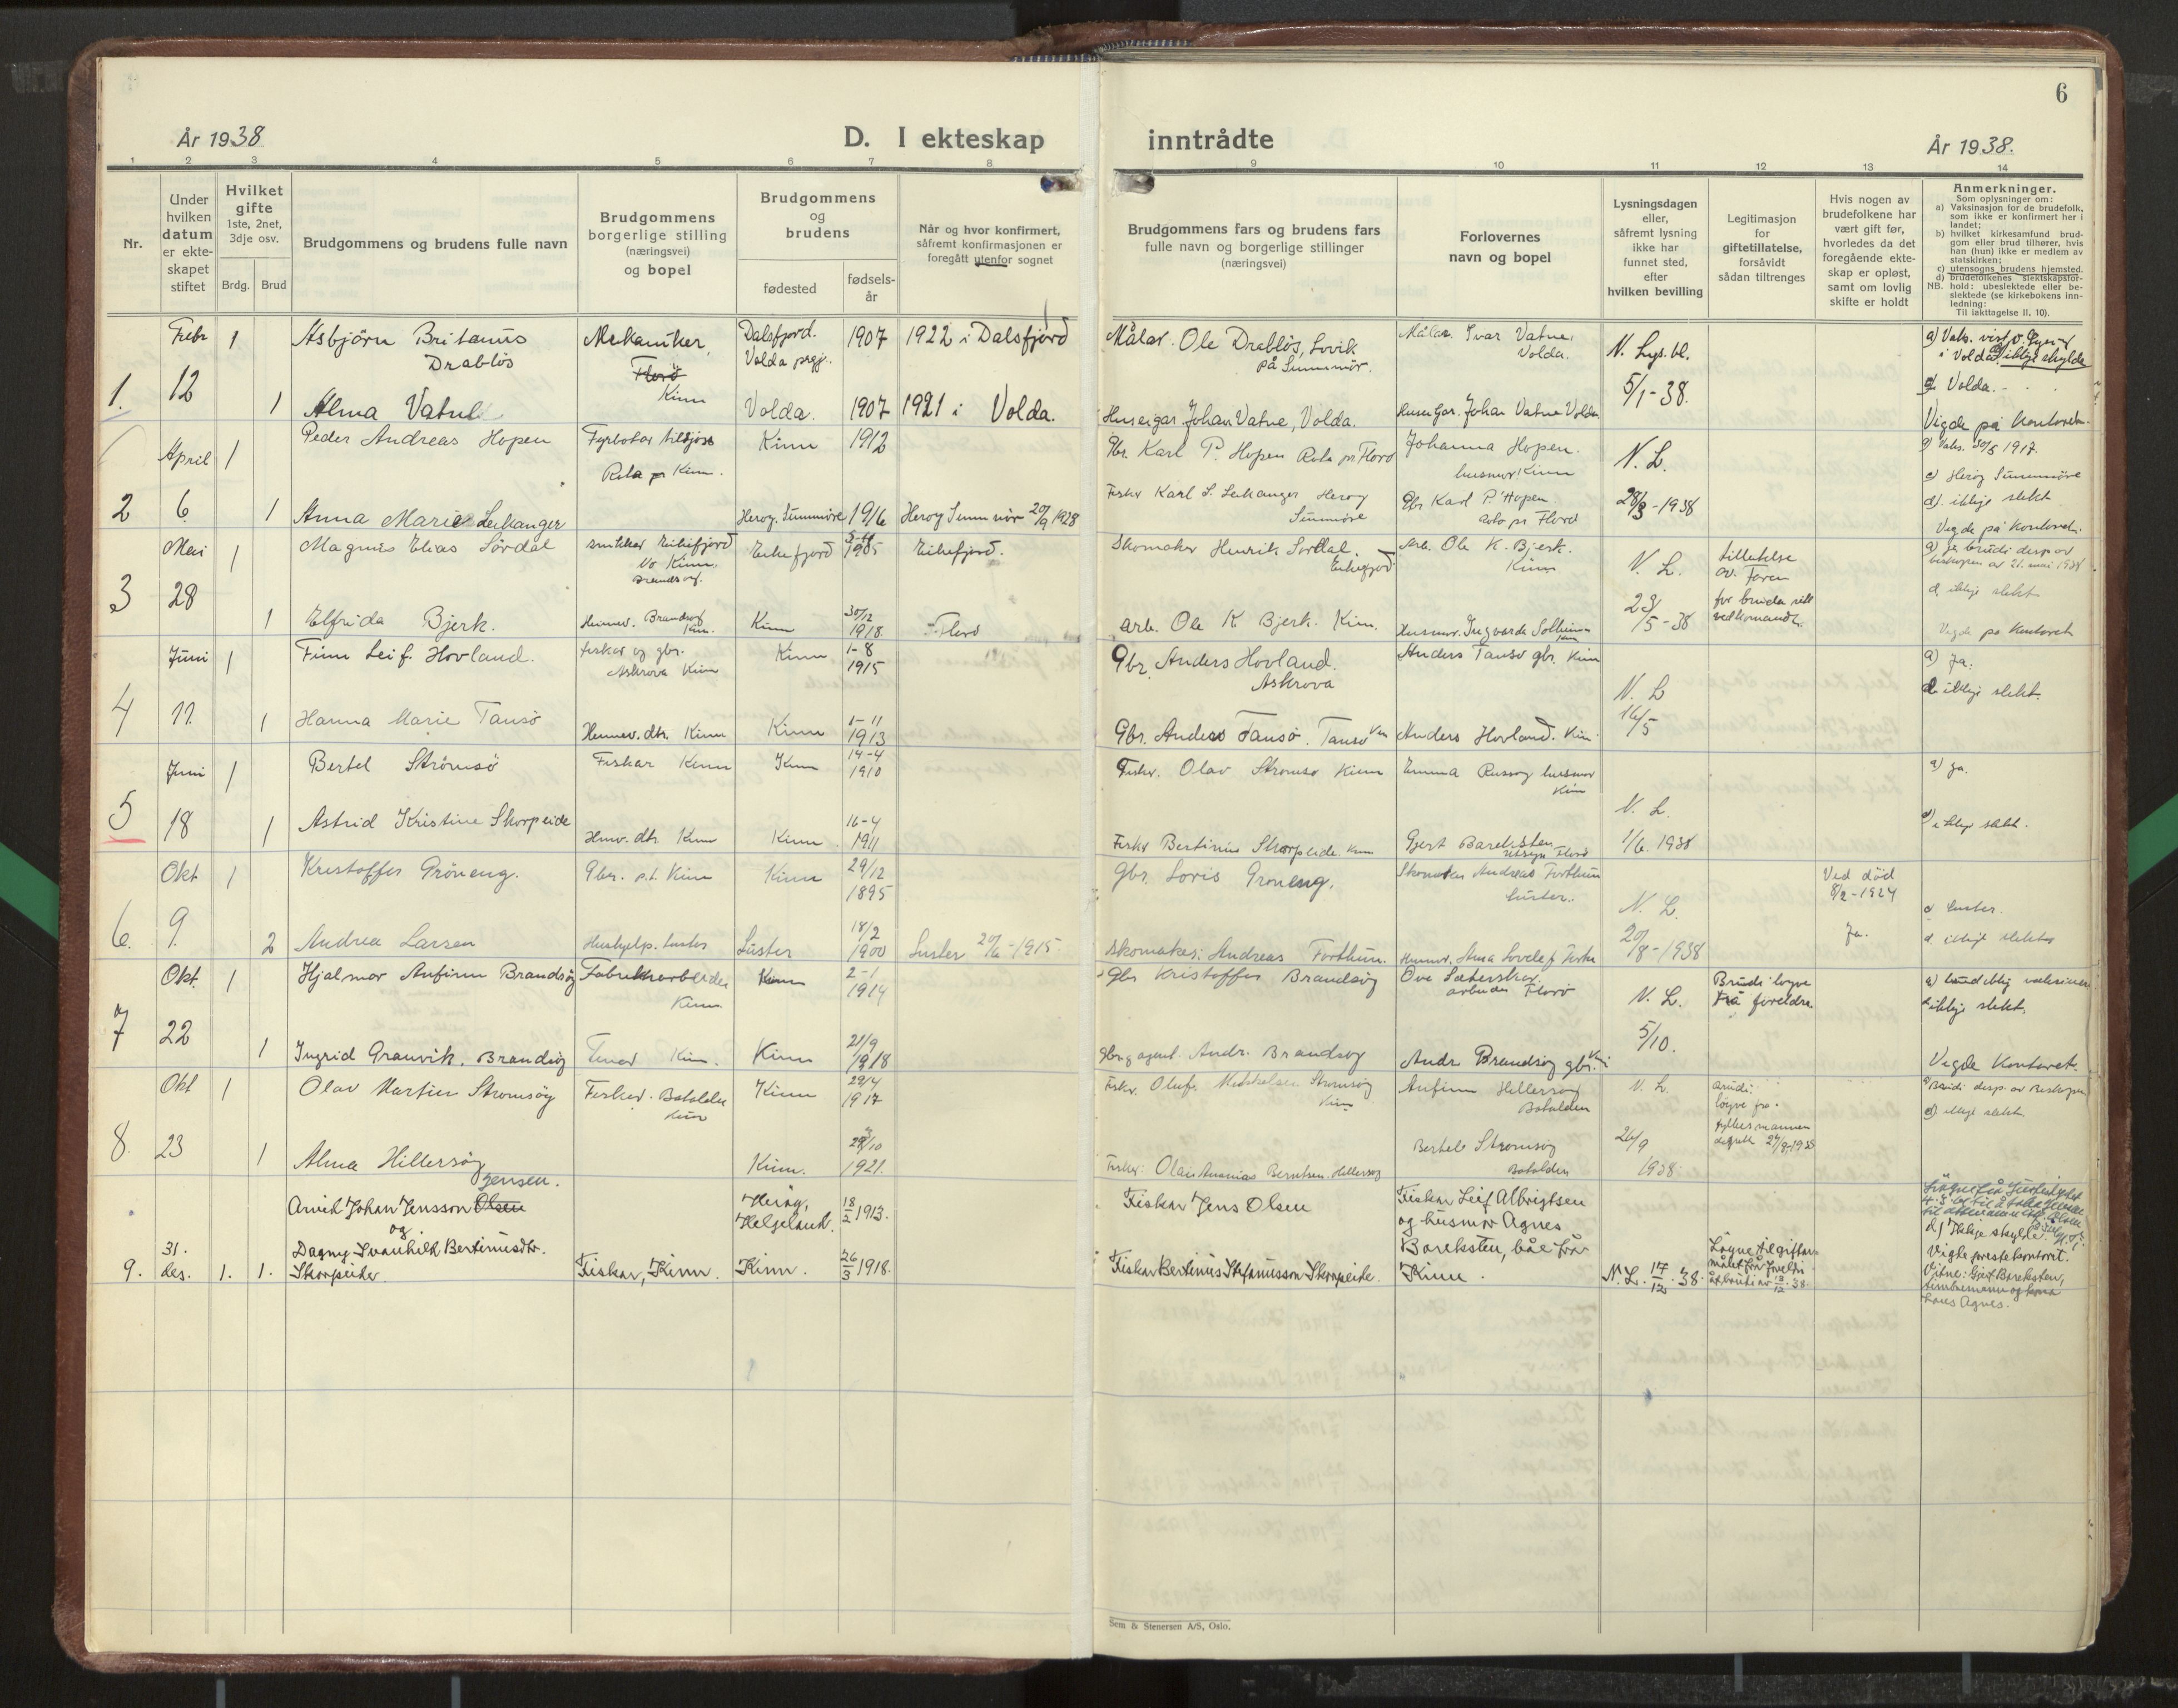 6
År 1938
D. I ekteskap
inntrådte
År 1938.
1 2 3 4 5 6 7 8 9 10 11 12 13 14
Nr.
Under
hvilken
datum
er ekte-
skapet
stiftet
Hvilket
gifte
1ste, 2net,
3dje osv.
Brdg. Brud
Brudgommens og brudens fulle navn
Brudgommens
borgerlige stilling
(næringsvei)
og bopel
Brudgommens
og
brudens
fødested
fødsels-
år
Når og hvor konfirmert,
såfremt konfirmasjonen er
foregått utenfor sognet
Brudgommens fars og brudens fars
fulle navn og borgerlige stillinger
(næringsvei)
Forlovernes
navn og bopel
Lysningsdagen
eller,
såfremt lysning
ikke har
funnet sted,
efter
hvilken bevilling
Legitimasjon
for
giftetillatelse,
forsåvidt
sådan tiltrenges
Hvis nogen av
brudefolkene har
vært gift før,
hvorledes da det
foregående ekte-
skap er opløst,
samt om lovlig
skifte er holdt
Anmerkninger.
Som oplysninger om:
a) Vaksinasjon for de brudefolk,
som ikke er konfirmert her i
landet;
b) hvilket kirkesamfund brud-
gom eller brud tilhører, hvis
han (hun) ikke er medlem av
statskirken;
c) utensogns brudens hjemsted.
d) brudefolkenes slektskapsfor-
NB. hold: ubeslektede eller be-
slektede (se kirkebokens inn-
ledning:
Til iakttagelse II. 10).
1. Febr 12 1 Asbjörn Britanus
Drablös
Mekaniker,
Florö
Kinn
Dalsfjord.
Volda prgj.
1907 1922 i Dalsfjord
Målar. Ole Drablös, Lovik
på Sunnmör.
Målar. Ivar Vatne,
Volda.
N. Lys. bl.
5/1-38.
1 Alma Vatne
Volda. 1907 1921 i Volda.
Huseigar Johan Vatne, Volda.
Huseigar. Johan Vatne Volda
Volda.
Vigde på kontoret.
2 April 6 1 Peder Andreas Hopen
Kinn.
Kinn 1912
Gbr. Karl P. Hopen
Johanna Hopen.
husmor Kinn
N. L.
28/3-1938
a) Vaks. 30/5 1917.
1 Anna Marie Leikanger
Heröy. Sunnmöre 1916 Heröy Sunnmör 20/9 1928
Fisker Karl S. Leikanger Heröy
Sunnmöre
Gbr Karl P. Hopen
c) Heröy Sunnmöre
d) ikkje slekt
Vigde på kontoret.
3 Mai 28 1 Magnus Elias Sördal
snikkar Eikefjord
Eikefjord 1905 Eikefjord.
Skomaker Henrik Sördal.
Eikefjord
Arb. Ole K. Bjerk.
Kinn
N. L.
23/5-38
tillatelse
av Faren
for bruden
1 Elfrida Bjerk.
Kinn 30/12
1918 Florö
Arb. Ole K Bjerk. Kinn.
d ikkje slekt
Vigde på kontoret
4 Juni 11. 1 Finn Leif. Hovland.
fiskar og gbr.
Askrova Kinn
Kinn 1-8
1915
Gbr. Anders Hovland.
Askrova
Anders Tansö gbr. Kinn
N. L
16/5
a) Ja.
d ikkje slekt.
1 Hanna Marie Tansö
Heimev. dtr. Kinn
Kinn 1-11
1913
Gbr. Anders Tansö. Tansö
Anders Hovland. Kinn.
5 Juni 18 1 Bertel Strömsö
Fiskar Kinn
Kinn 14-4
1910
Fisker. Olav Strömsö Kinn
husmor
Kinn
N. L.
1/6. 1938
a) ja.
1 Astrid Kristine Skorpeide
Hmv. dtr. Kinn
Kinn 16-4
1911
Fisker Bertinius Skorpeide. Kinn
Gjert Bareksten
d) ikkje slekt.
6. Okt 9. 1 Kristoffer Gröneng.
Gbr. p.t. Kinn
Kinn 29/12
1895
Gbr. Gröneng.
Skomaker Andreas Forthun
Luster.
N. L.
20/8-1938
Ved död
8/2-1924
Ja.
c Luster.
2 Andrea Larsen
Hushjelp. Luster
Luster 18/2
1900 Luster 20/6-1915.
Skomaker: Andreas Forthun.
7 Okt. 22 1 Hjalmar Anfinn Brandsöy
Fabrikkarbeider
Kinn.
Kinn 2-1
1914
Gbr Kristoffer Brandsöy
Ove Sæterskar
arbeider Florö
N. L.
5/10.
Brudi löyve
frå foreldra
ikkje slekt.
1 Ingrid Granvik. Brandsöy
Kinn.
Kinn 21/9
1918
Andr. Brandsöy
Andr Brandsöy gbr.
Vigde Kontoret.
8. Okt 23 1 Olav Martin Strömsöy
Fisker. Batalden
Kinn
Kinn 29/4
1917
Fisker. Strömsöy
Kinn
Anfinn Hillersöy
Batalden
N. L.
26/9
1938.
Brudi:
löyve frå
fylkesmannen
a) Brudi desp. av Biskopen
d) ikkje slekt
1 Alma Hillersöy
Kinn. 1921.
Fisker: Olai Ananias Berntsen. Hillersöy
Bertel Strömsöy
Batalden
9. 31. des. 1. 1. Jensen.
Arvid Johan Jensson Olsen
og
Dagny Svanhild Bertinusdtr.
Skorpeide.
Fiskar, Kinn.
Heröy,
Helgeland. 18/2 1913.
Kinn. 26/3 1918.
Fiskar Jens Olsen
Fiskar Bertinus Stefanusson Skorpeide.
Fiskar Leif Albrigtsen
og husmor Agnes
Bareksten, båe frå
Kinn.
N. L. 17/12. 38.
Löyve til giftar-
målet frå foreldri
åt brudi av 13/12 38.
d) Ikkje skylde.
Vigde prestekontoret.
Vitne: Gjert Bareksten,
timbremann og kona
hans Agnes.
Sem & Stenersen A/S, Oslo.